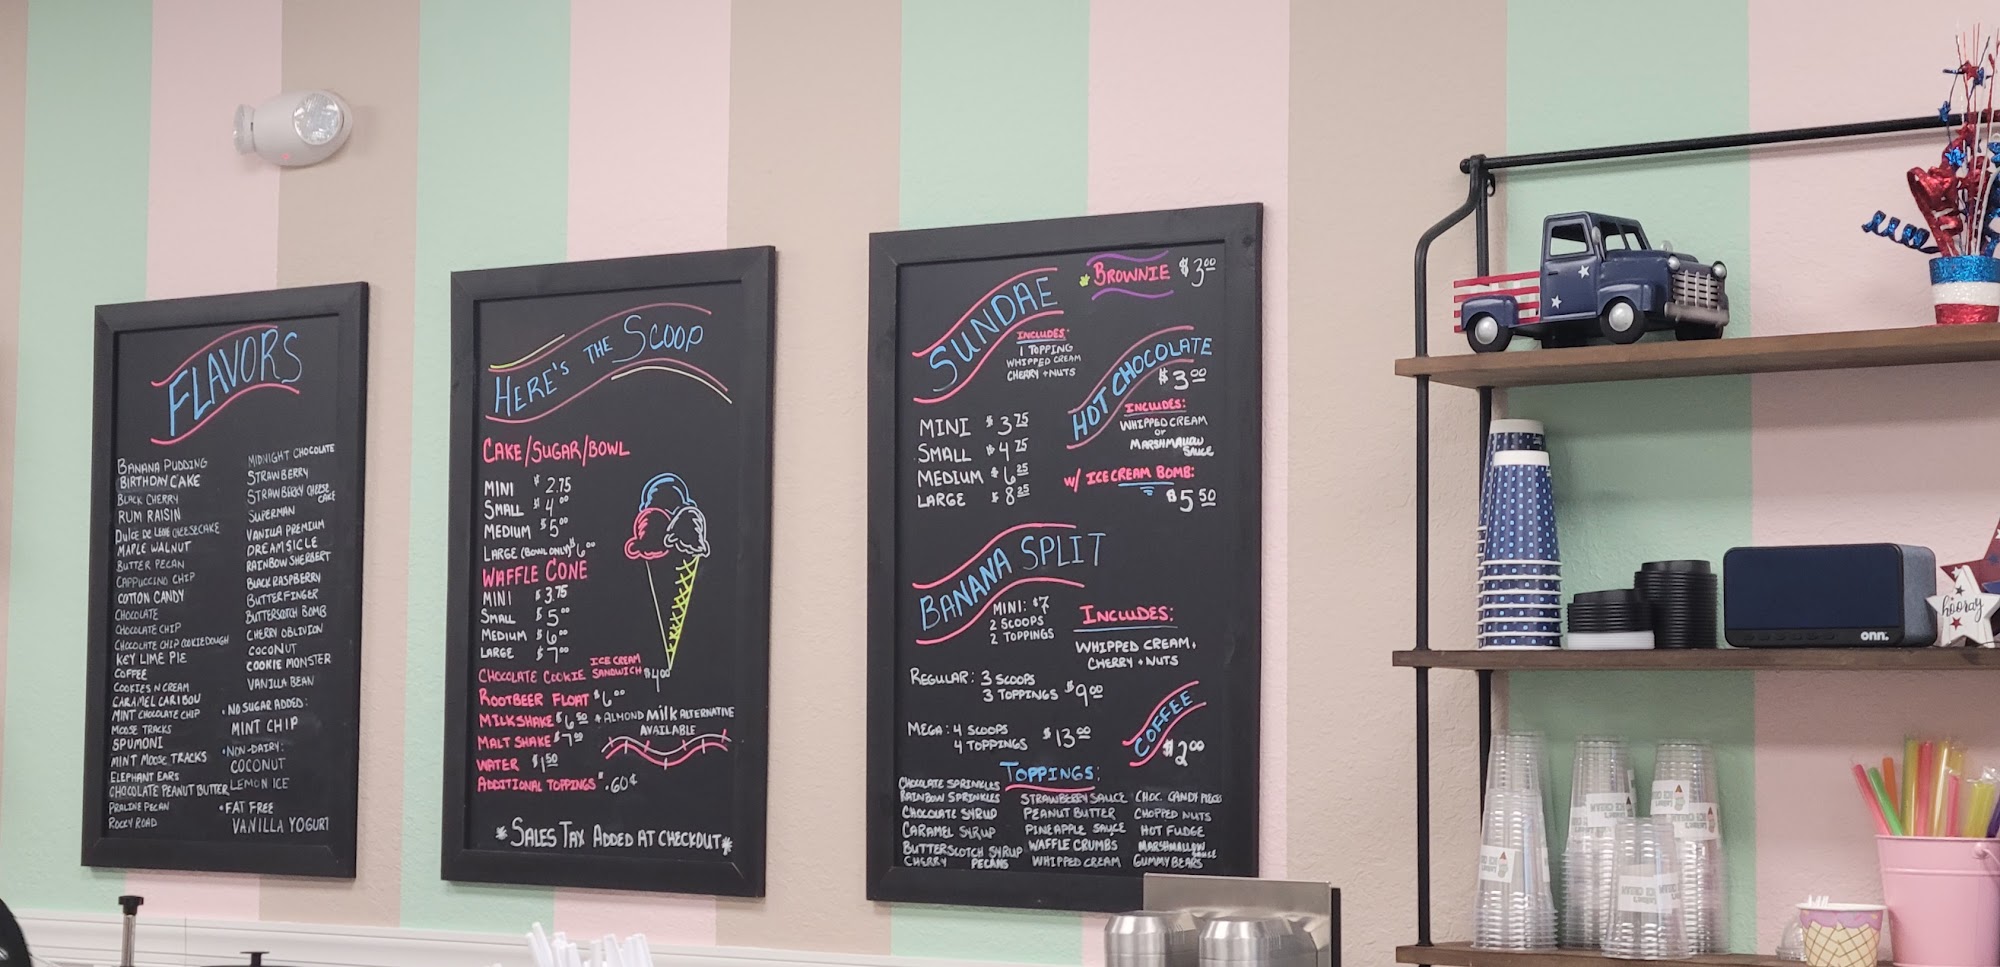 FLAVORS
BANANA PUDDING
BIRTHDAY CAKE
BLACK CHERRY
RUM RAISIN
DULCE DE LECHE CHEESECAKE
MAPLE WALNUT
BUTTER PECAN
CAPPUCCINO CHIP
COTTON CANDY
CHOCOLATE
CHOCOLATE CHIP
CHOCOLATE CHIP COOKIE DOUGH
KEY LIME PIE
COFFEE
COOKIES N CREAM
CARAMEL CARIBOU
MINT CHOCOLATE CHIP
MOOSE TRACKS
SPUMONI
MINT MOOSE TRACKS
ELEPHANT EARS
CHOCOLATE PEANUT BUTTER
PRALINE PECAN
ROCKY ROAD
MIDNIGHT CHOCOLATE
STRAWBERRY
STRAWBERRY CHEESE
CAKE
SUPERMAN
VANILLA PREMIUM
DREAMSICLE
RAINBOW SHERBERT
BLACK RASPBERRY
BUTTERFINGER
BUTTERSCOTCH BOMB
CHERRY OBLIVION
COCONUT
COOKIE MONSTER
VANILLA BEAN
• NO SUGAR ADDED:
MINT CHIP
• NON-DAIRY:
COCONUT
LEMON ICE
• FAT FREE
VANILLA YOGURT
HERE'S THE SCOOP
CAKE/SUGAR/BOWL
MINI $2.75
SMALL $4.00
MEDIUM $5.00
LARGE (BOWL ONLY) $6.00
WAFFLE CONE
MINI $3.75
SMALL $5.00
MEDIUM $6.00
LARGE $7.00
CHOCOLATE COOKIE ICE CREAM SANDWICH $4.00
ROOTBEER FLOAT $6.00
MILKSHAKE $6.50 * ALMOND MILK ALTERNATIVE
AVAILABLE
MALT SHAKE $7.00
WATER $1.50
ADDITIONAL TOPPINGS .60¢
* SALES TAX ADDED AT CHECKOUT *
SUNDAE
INCLUDES:
1 TOPPING
WHIPPED CREAM
CHERRY + NUTS
MINI $3.75
SMALL $4.75
MEDIUM $6.25
LARGE $8.25
BROWNIE $3.00
HOT CHOCOLATE
$3.00
INCLUDES:
WHIPPED CREAM
OR
MARSHMALLOW
SAUCE
W/ ICE CREAM BOMB:
$5.50
BANANA SPLIT
MINI: $7
2 SCOOPS
2 TOPPINGS
INCLUDES:
WHIPPED CREAM,
CHERRY + NUTS
REGULAR: 3 SCOOPS
3 TOPPINGS $9.00
MEGA: 4 SCOOPS
4 TOPPINGS $13.00
COFFEE
$2.00
TOPPINGS:
CHOCOLATE SPRINKLES
RAINBOW SPRINKLES
CHOCOLATE SYRUP
CARAMEL SYRUP
BUTTERSCOTCH SYRUP
CHERRY PECANS
STRAWBERRY SAUCE
PEANUT BUTTER
PINEAPPLE SAUCE
WAFFLE CRUMBS
WHIPPED CREAM
CHOC. CANDY PIECES
CHOPPED NUTS
HOT FUDGE
MARSHMALLOW
SAUCE
GUMMY BEARS
onn.
hooray
ICE CREAM
ICE CREAM
ICE CREAM
ICE CREAM